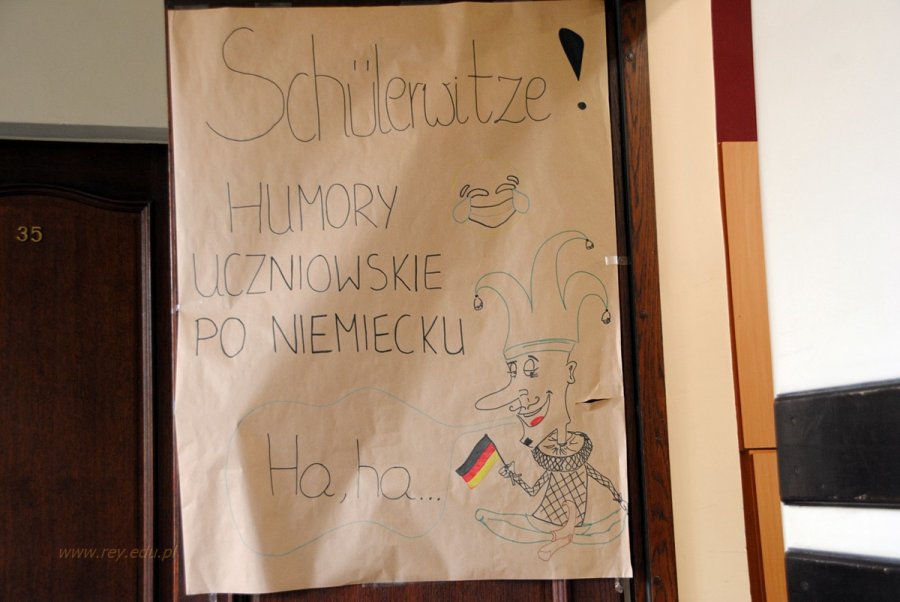 Schülerwitze!
HUMORY
UCZNIOWSKIE
PO NIEMIECKU
Ha, ha...
35
www.rey.edu.pl